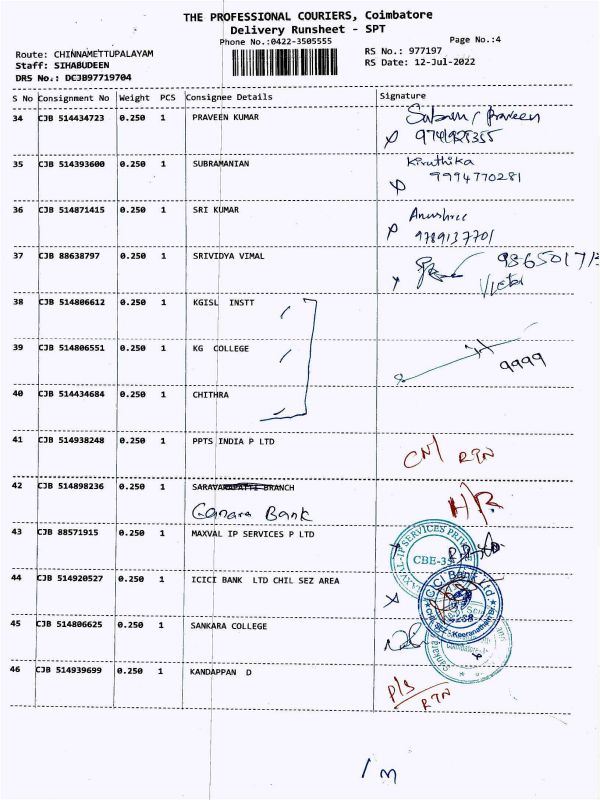 THE PROFESSIONAL COURIERS, Coimbatore
Delivery Runsheet - SPT
Phone No.:0422-3505555
Page No.:4
Route: CHINNAMETTUPALAYAM
RS No.: 977197
Staff: SIHABUDEEN
RS Date: 12-Jul-2022
DRS No.: DCJB97719704
S No Consignment No Weight PCS Consignee Details Signature
34 CJB 514434723 0.250 1 PRAVEEN KUMAR
Praveen
9741928355
35 CJB 514393600 0.250 1 SUBRAMANIAN Kiruthika
9994770281
36 CJB 514871415 0.250 1 SRI KUMAR Anushree
9789137701
37 CJB 88638797 0.250 1 SRIVIDYA VIMAL
38 CJB 514806612 0.250 1 KGISL INSTT
39 CJB 514806551 0.250 1 KG COLLEGE 9999
40 CJB 514434684 0.250 1 CHITHRA
41 CJB 514938248 0.250 1 PPTS INDIA P LTD
RTN
42 CJB 514898236 0.250 1 SARAVANAPATTI BRANCH
Canara Bank
43 CJB 88571915 0.250 1 MAXVAL IP SERVICES P LTD
CBE-35
44 CJB 514920527 0.250 1 ICICI BANK LTD CHIL SEZ AREA
ICICI Bank Ltd
45 CJB 514806625 0.250 1 SANKARA COLLEGE
46 CJB 514939699 0.250 1 KANDAPPAN D
RTN
1 m